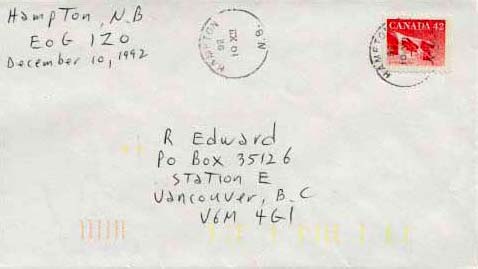 Hampton, N.B
E0G 1Z0
December 10, 1992
HAMPTON
92
10 XII
N.B.
CANADA 42
HAMPTON
10
R Edward
Po Box 35126
Station E
Vancouver, B.C
V6M 4G1